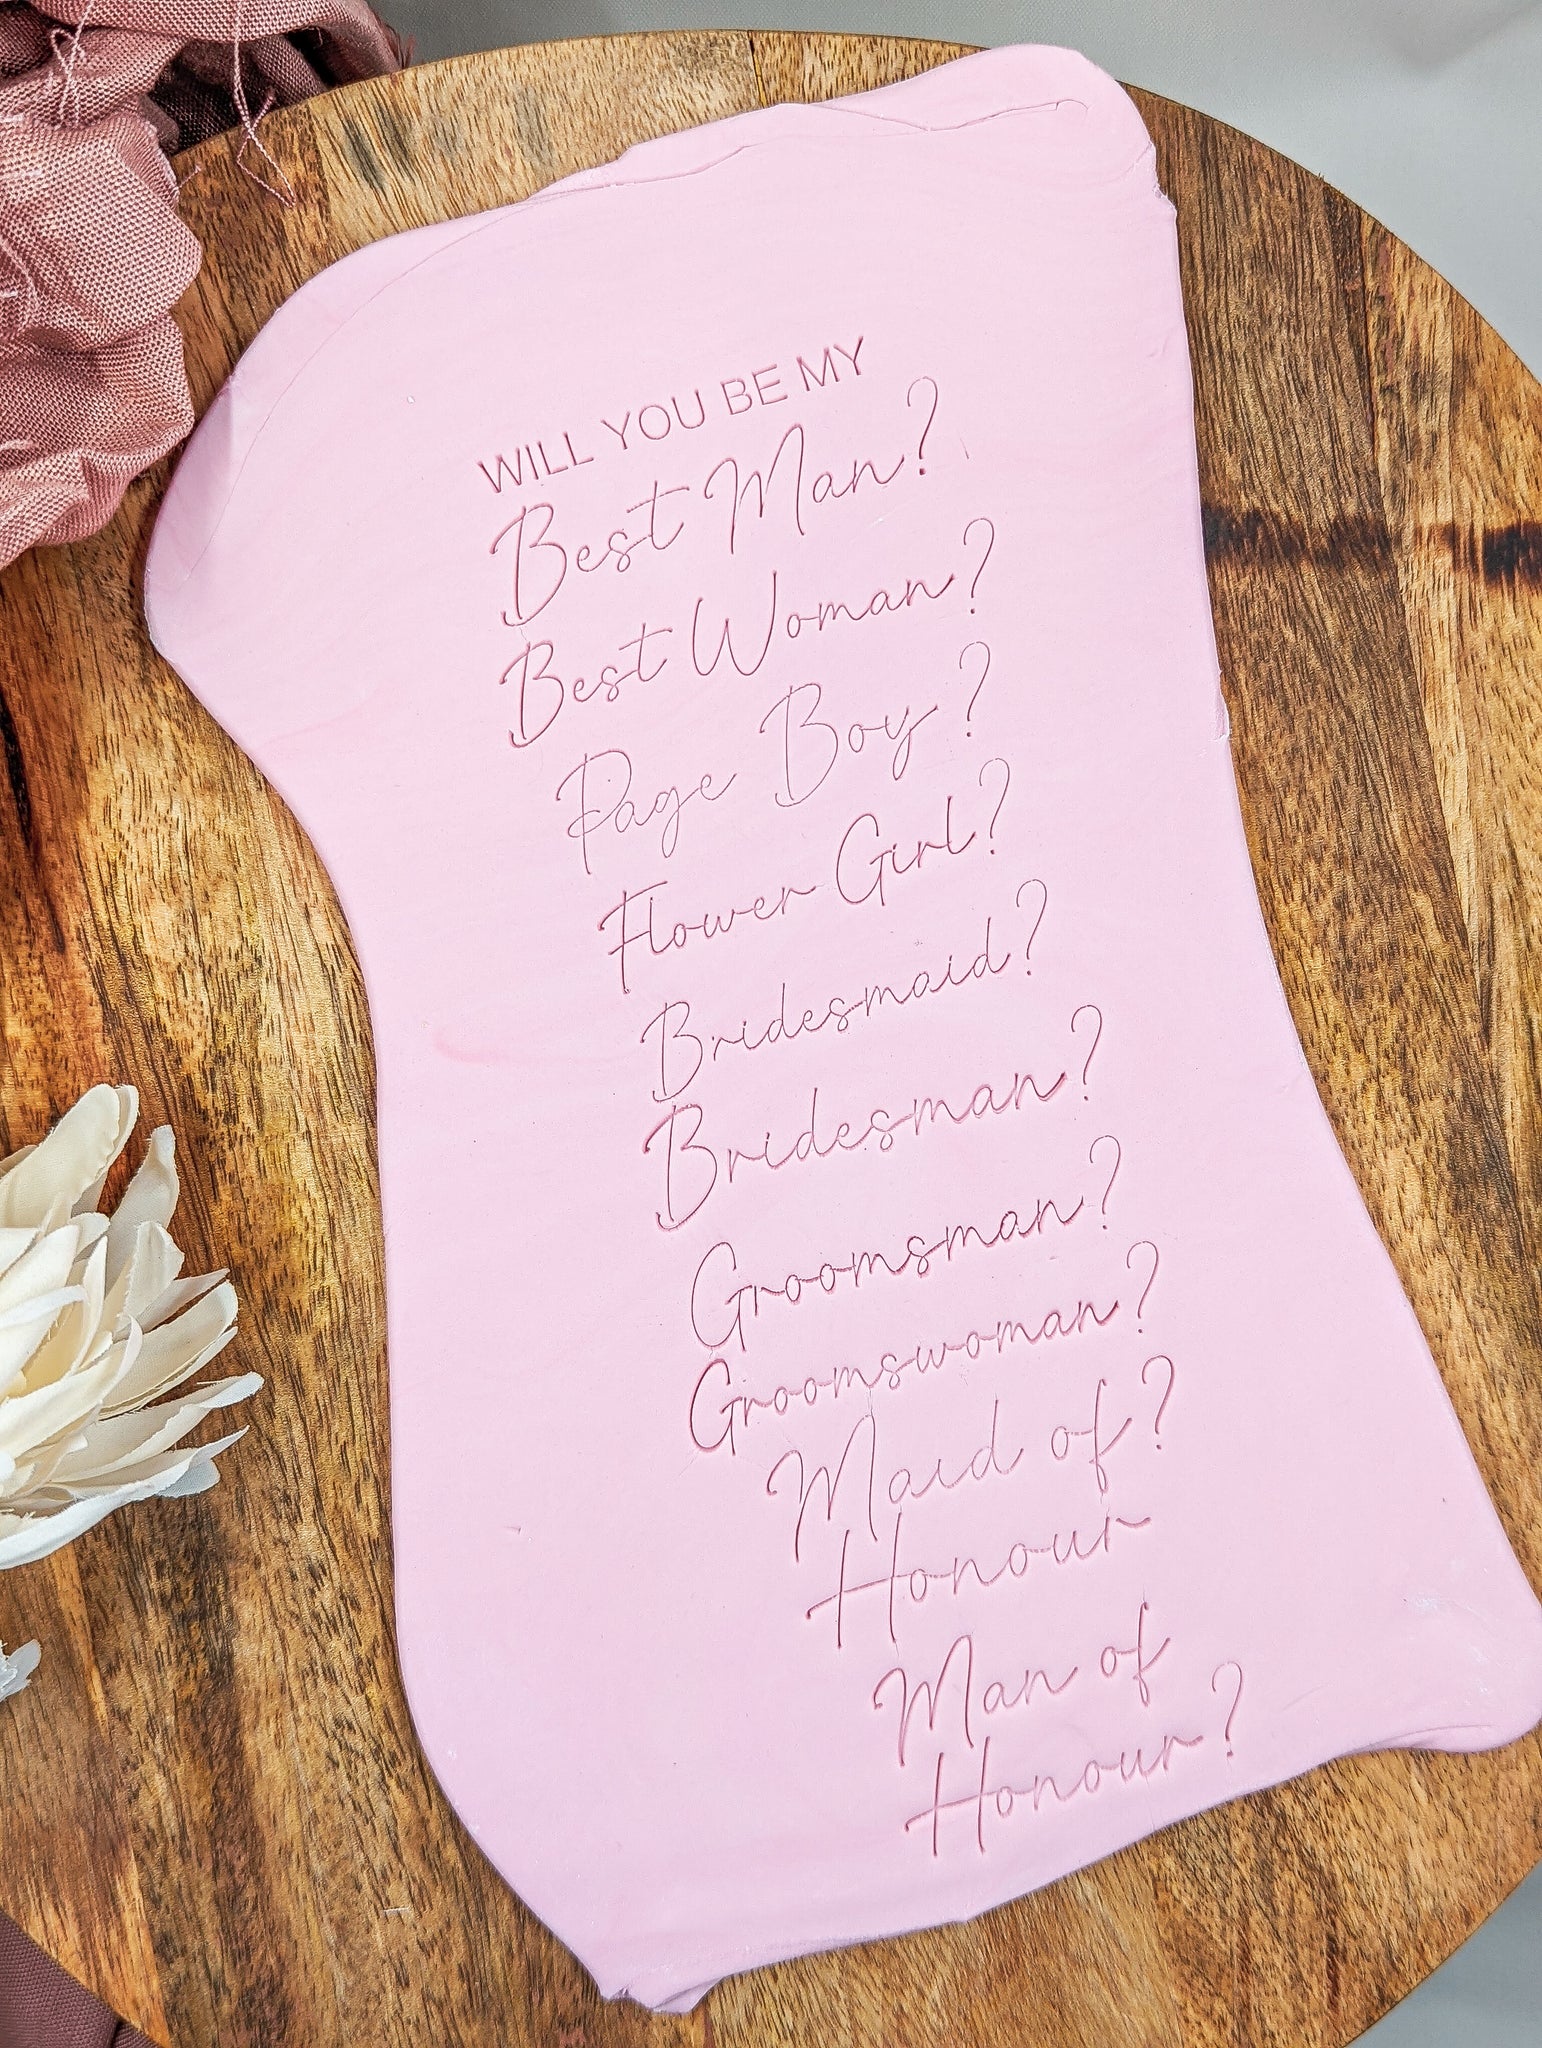 WILL YOU BE MY
Best Man?
Best Woman?
Page Boy?
Flower Girl?
Bridesmaid?
Bridesman?
Groomsman?
Groomswoman?
Maid of?
Honour
Man of
Honour?